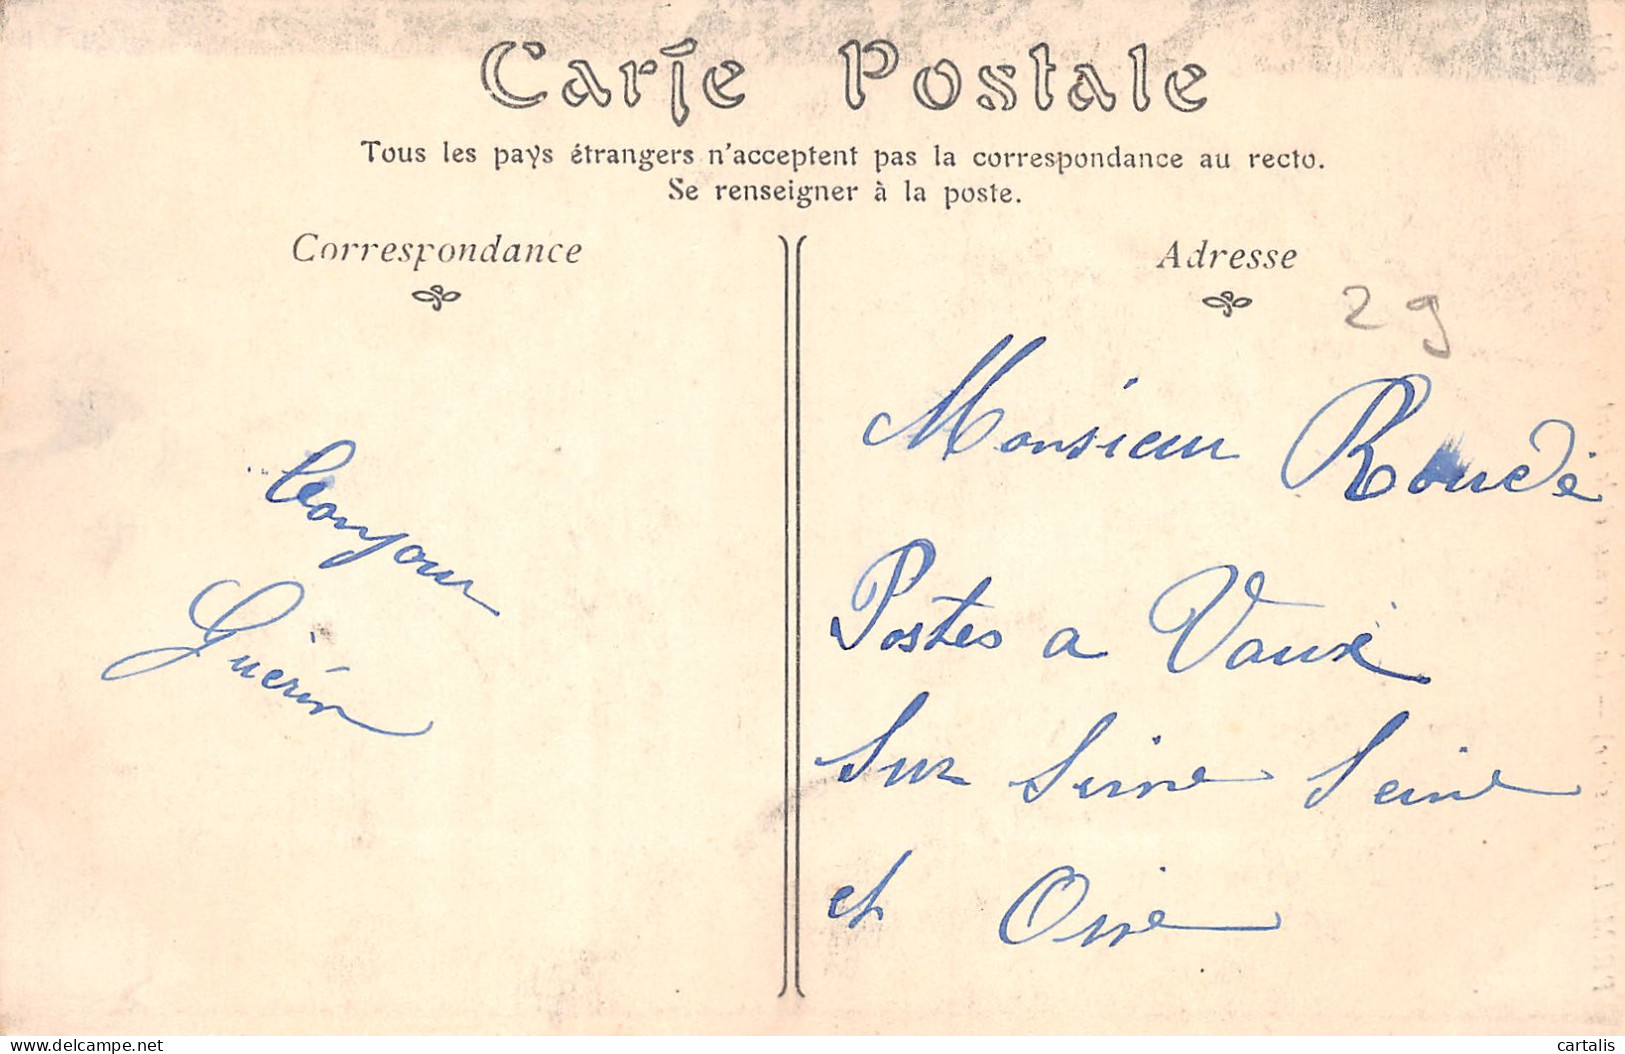 Carte Postale
Tous les pays étrangers n'acceptent pas la correspondance au recto.
Se renseigner à la poste.
Correspondance
Adresse
29
Bonjour
Guérin
Monsieur Roudé
Postes a Vaux
Sur Seine Seine
et Oise
delcampe.net
cartalis